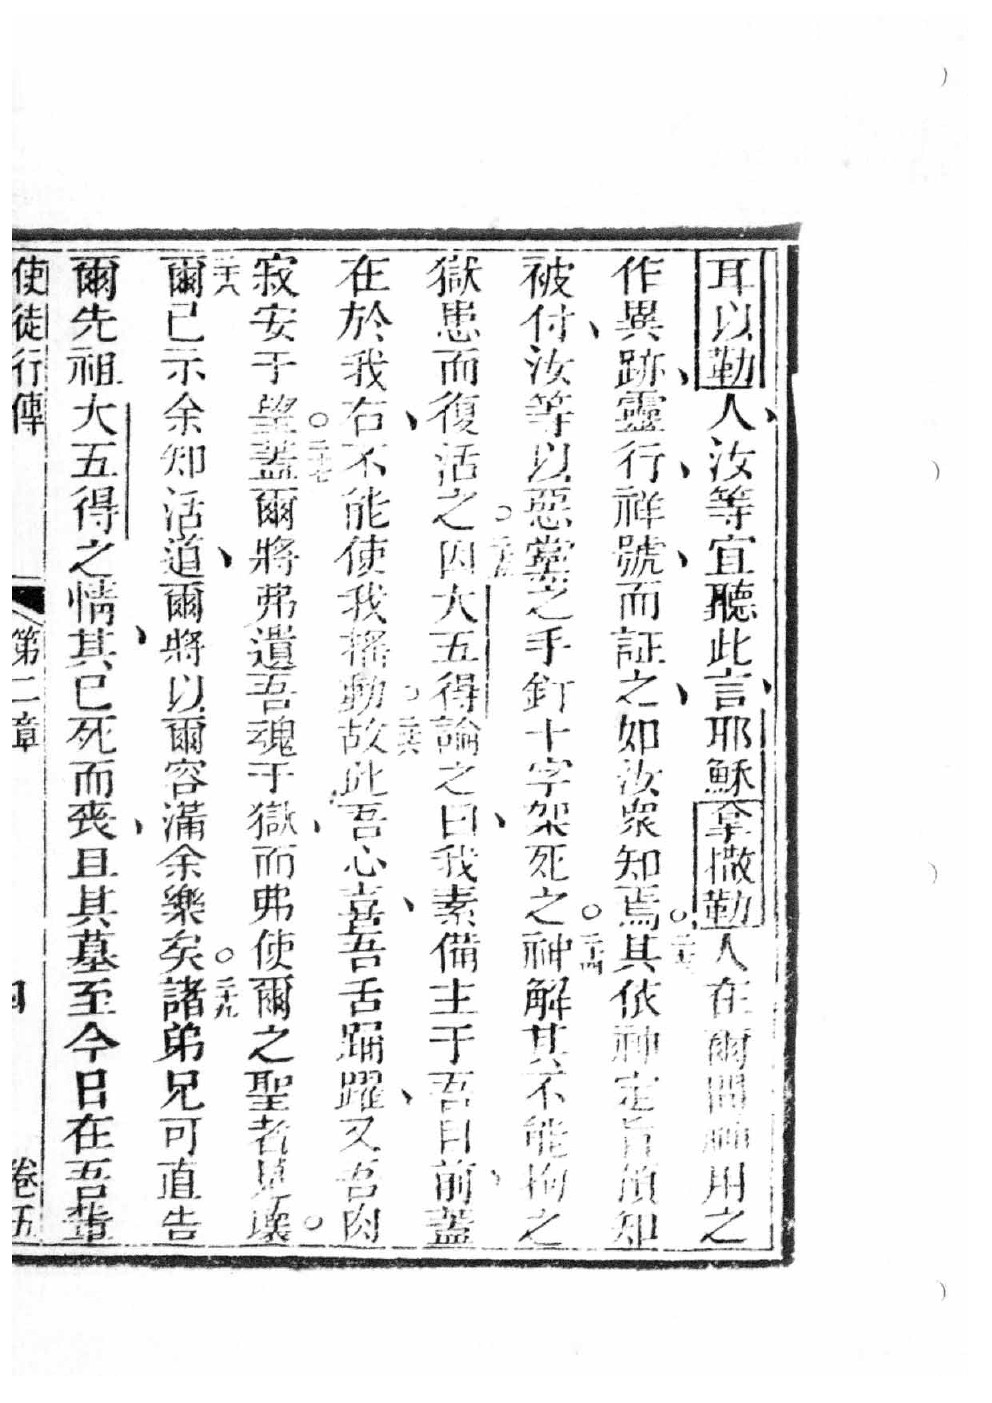 耳以勒人、汝等宜聽此言、耶穌拿撒勒人在爾間神用之
作異跡、靈行、祥號、而証之、如汝衆知焉○二十三其依神定旨預知
被付、汝等以惡黨之手釘十字架死之○二十四神解其不能拘之
獄患而復活之○二十五因大五得論之曰、我素備主于吾目前、蓋
在於我右、不能使我搖動○二十六故此吾心喜、吾舌踊躍、又吾肉
寂安于望○二十七蓋爾將弗遺吾魂于獄、而弗使爾之聖者見壞○
二十八爾已示余知活道、爾將以爾容滿余樂矣○二十九諸弟兄可直告
爾先祖大五得之情、其已死而喪、且其墓至今日在吾輩
使徒行傳 第二章 四 卷五